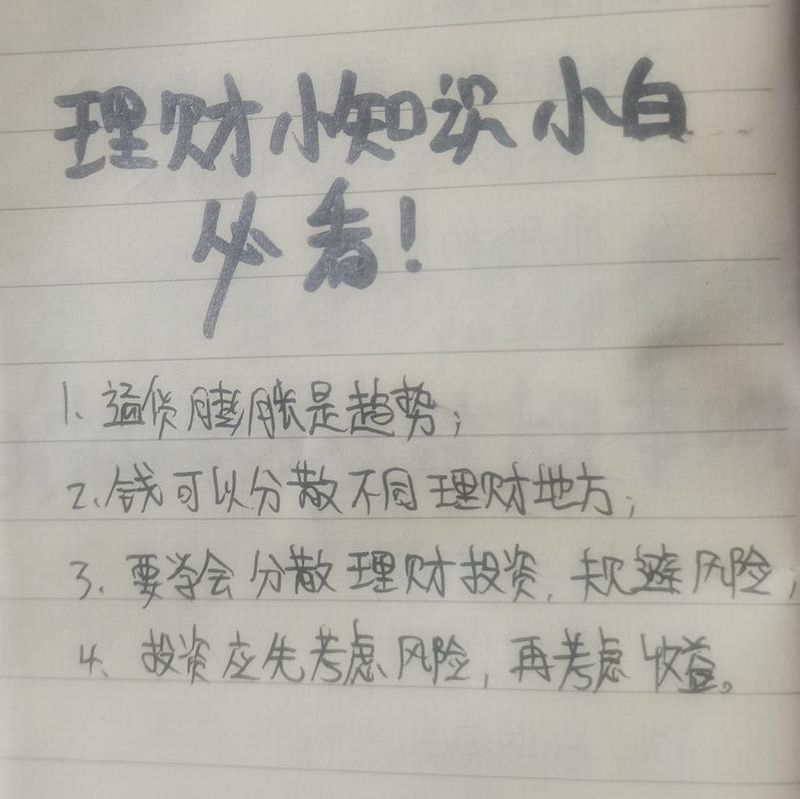 理财小知识 小白
必看！
1. 通货膨胀是趋势；
2. 钱可以分散不同理财地方；
3. 要学会分散理财投资，规避风险；
4. 投资应先考虑风险，再考虑收益。